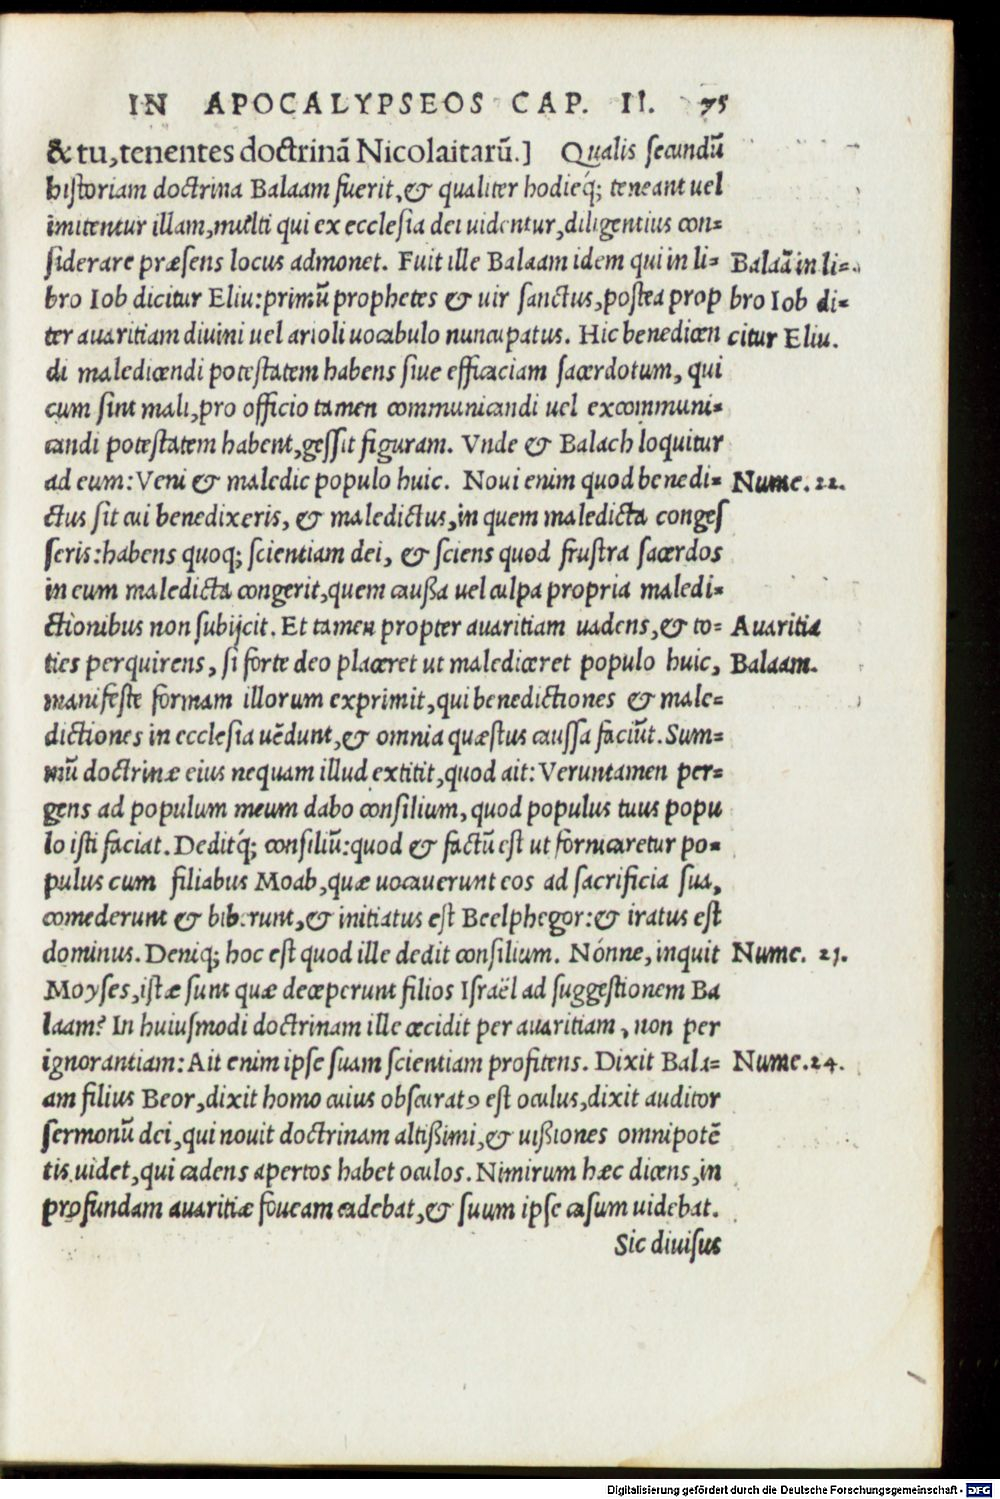 IN APOCALYPSEOS CAP. II. 75
& tu, tenentes doctrinã Nicolaitarũ.] Qualis secundũ
historiam doctrina Balaam fuerit, & qualiter hodieq́; teneant uel
imitentur illam, multi qui ex ecclesia dei uidentur, diligentius con=
siderare præsens locus admonet. Fuit ille Balaam idem qui in li=
Balaã in li=
bro Iob dicitur Eliu: primũ prophetes & uir sanctus, postea prop
bro Iob di=
ter auaritiam diuini uel arioli uocabulo nuncupatus. Hic benedicen
citur Eliu.
di maledicendi potestatem habens siue efficaciam sacerdotum, qui
cum sint mali, pro officio tamen communicandi uel excommuni=
candi potestatem habent, gessit figuram. Vnde & Balach loquitur
ad eum: Veni & maledic populo huic. Noui enim quod benedi=
Nume. 22.
ctus sit cui benedixeris, & maledictus, in quem maledicta conges
seris: habens quoq; scientiam dei, & sciens quod frustra sacerdos
in eum maledicta congerit, quem caußa uel culpa propria maledi=
ctionibus non subijcit. Et tamen propter auaritiam uadens, & to=
Auaritia
ties perquirens, si forte deo placeret ut malediceret populo huic,
Balaam.
manifeste formam illorum exprimit, qui benedictiones & male=
dictiones in ecclesia uẽdunt, & omnia quæstus caussa faciũt. Sum=
mũ doctrinæ eius nequam illud extitit, quod ait: Veruntamen per=
gens ad populum meum dabo consilium, quod populus tuus popu
lo isti faciat. Deditq́; consiliũ: quod & factũ est ut fornicaretur po=
pulus cum filiabus Moab, quæ uocauerunt eos ad sacrificia sua,
comederunt & biberunt, & initiatus est Beelphegor: & iratus est
dominus. Deniq; hoc est quod ille dedit consilium. Nónne, inquit
Nume. 25.
Moyses, istæ sunt quæ deceperunt filios Israël ad suggestionem Ba
laam? In huiusmodi doctrinam ille cecidit per auaritiam, non per
ignorantiam: Ait enim ipse suam scientiam profitens. Dixit Bala=
Nume. 24.
am filius Beor, dixit homo cuius obscuratꝰ est oculus, dixit auditor
sermonũ dei, qui nouit doctrinam altißimi, & uißiones omnipotẽ
tis uidet, qui cadens apertos habet oculos. Nimirum hæc dicens, in
profundam auaritiæ foueam cadebat, & suum ipse casum uidebat.
Sic diuisus
Digitalisierung gefördert durch die Deutsche Forschungsgemeinschaft - DFG